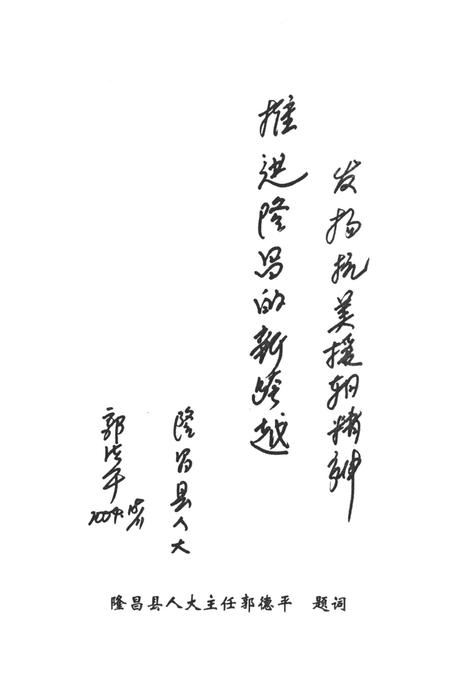 发扬抗美援朝精神
推进隆昌的新跨越
隆昌县人大
郭德平
隆昌县人大主任郭德平 题词